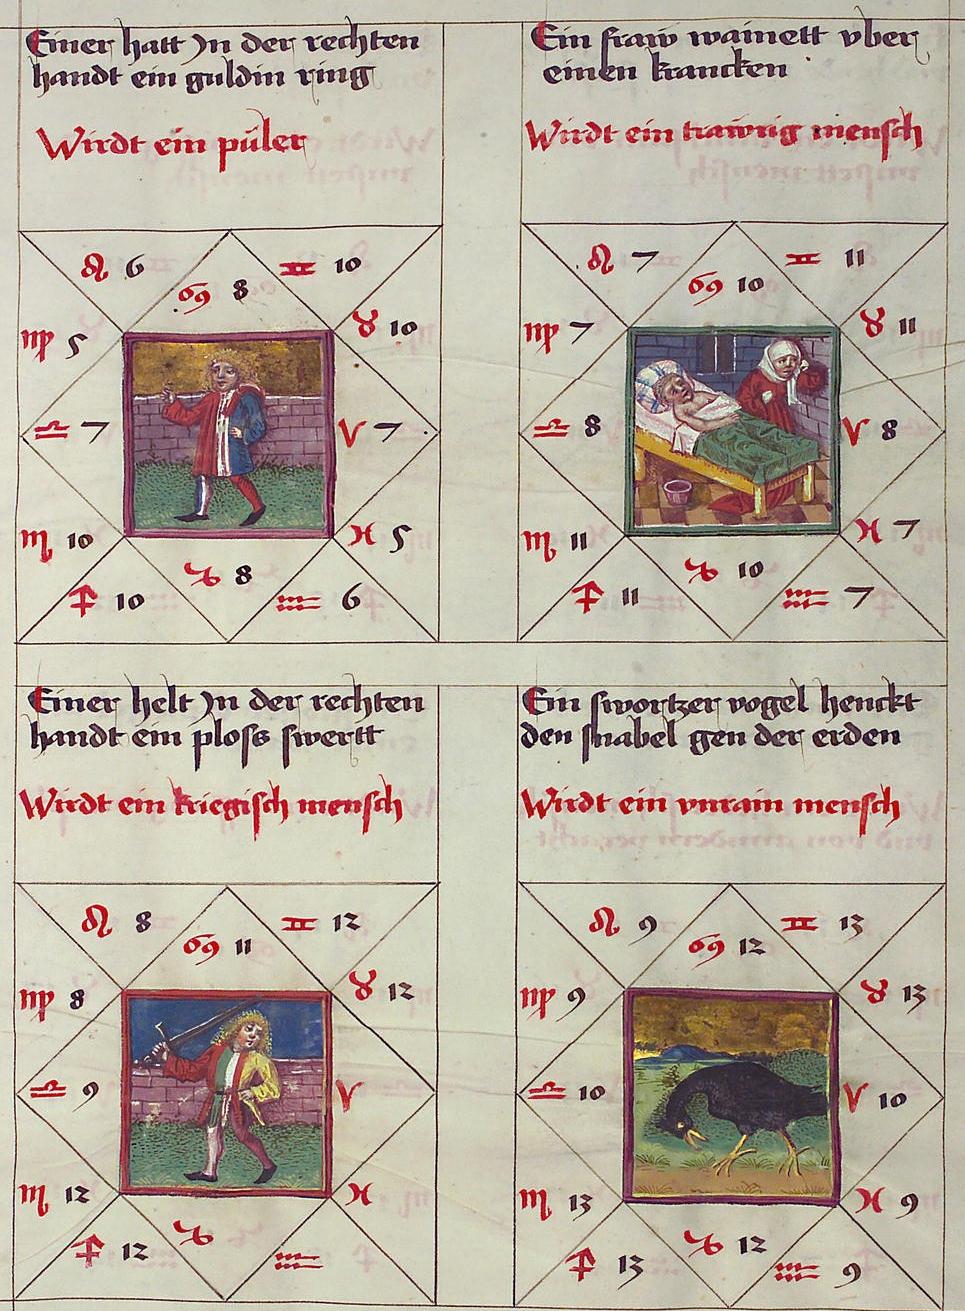 Einer hatt Jn der rechten
handt ein guldin ring
Wirdt ein půler
♌ 6
♋ 8
♊ 10
♍ 5
♉ 10
♎ 7
♈ 7
♏ 10
♓ 5
♐ 10
♑ 8
♒ 6
Ein fraw wainett vber
einen krancken
Wirdt ein trawrig mensch
♌ 7
♋ 10
♊ 11
♍ 7
♉ 11
♎ 8
♈ 8
♏ 11
♓ 7
♐ 11
♑ 10
♒ 7
Einer helt Jn der rechten
handt ein ploss swertt
Wirdt ein kriegisch mensch
♌ 8
♋ 11
♊ 12
♍ 8
♉ 12
♎ 9
♈
♏ 12
♓
♐ 12
♑
♒
Ein swortzer vogel henckt
den snabel gen der erden
Wirdt ein vnrain mensch
♌ 9
♋ 12
♊ 13
♍ 9
♉ 13
♎ 10
♈ 10
♏ 13
♓ 9
♐ 13
♑ 12
♒ 9